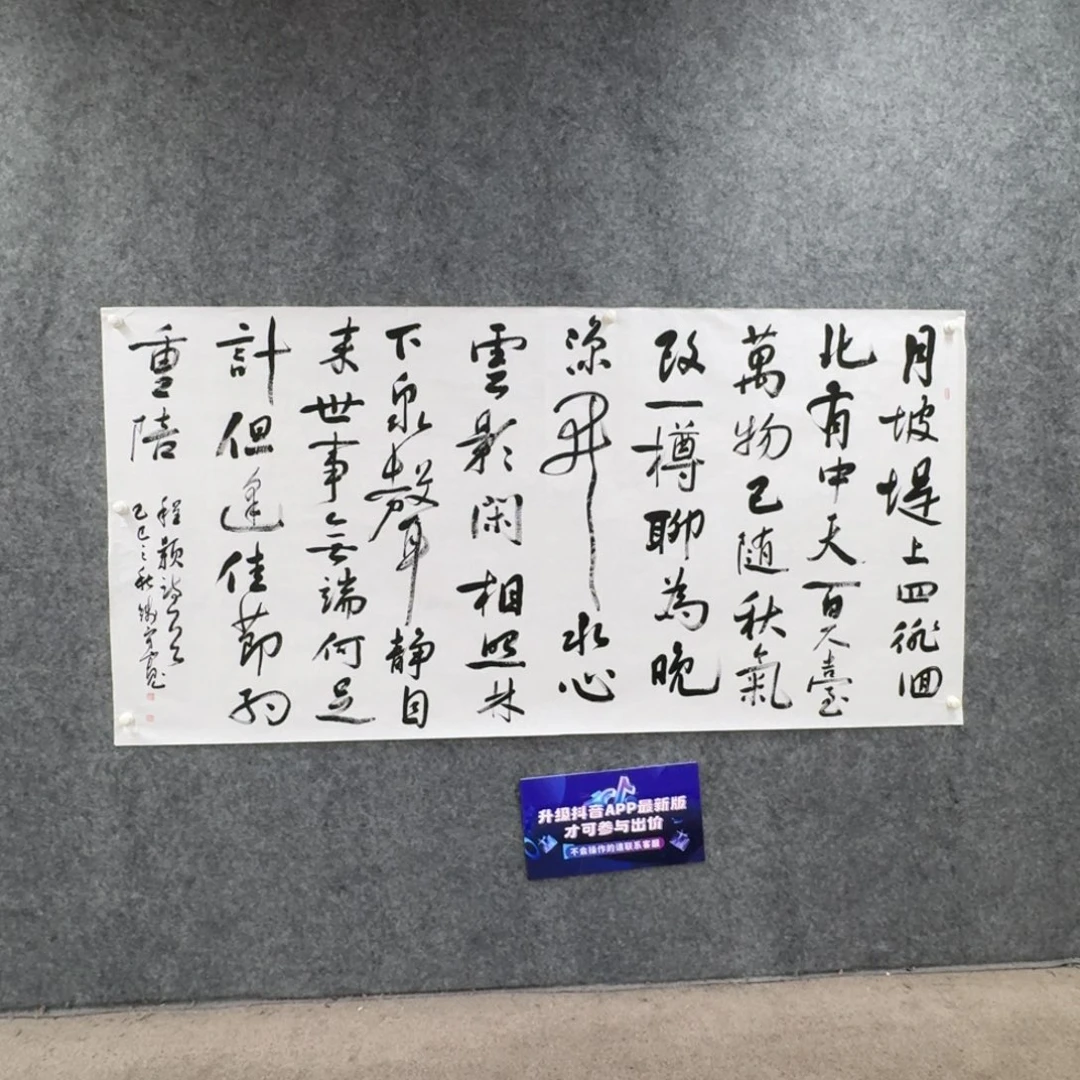 月坡堤上四徘徊
北有中天百尺臺
萬物已随秋氣
改一樽聊為晚
涼開水心
雲影閑相照林
下泉聲静自
来世事无端何足
計但逢佳節約
重陪
程颢詩一首
乙巳之秋
升级抖音APP最新版
才可参与出价
不会操作的请联系客服